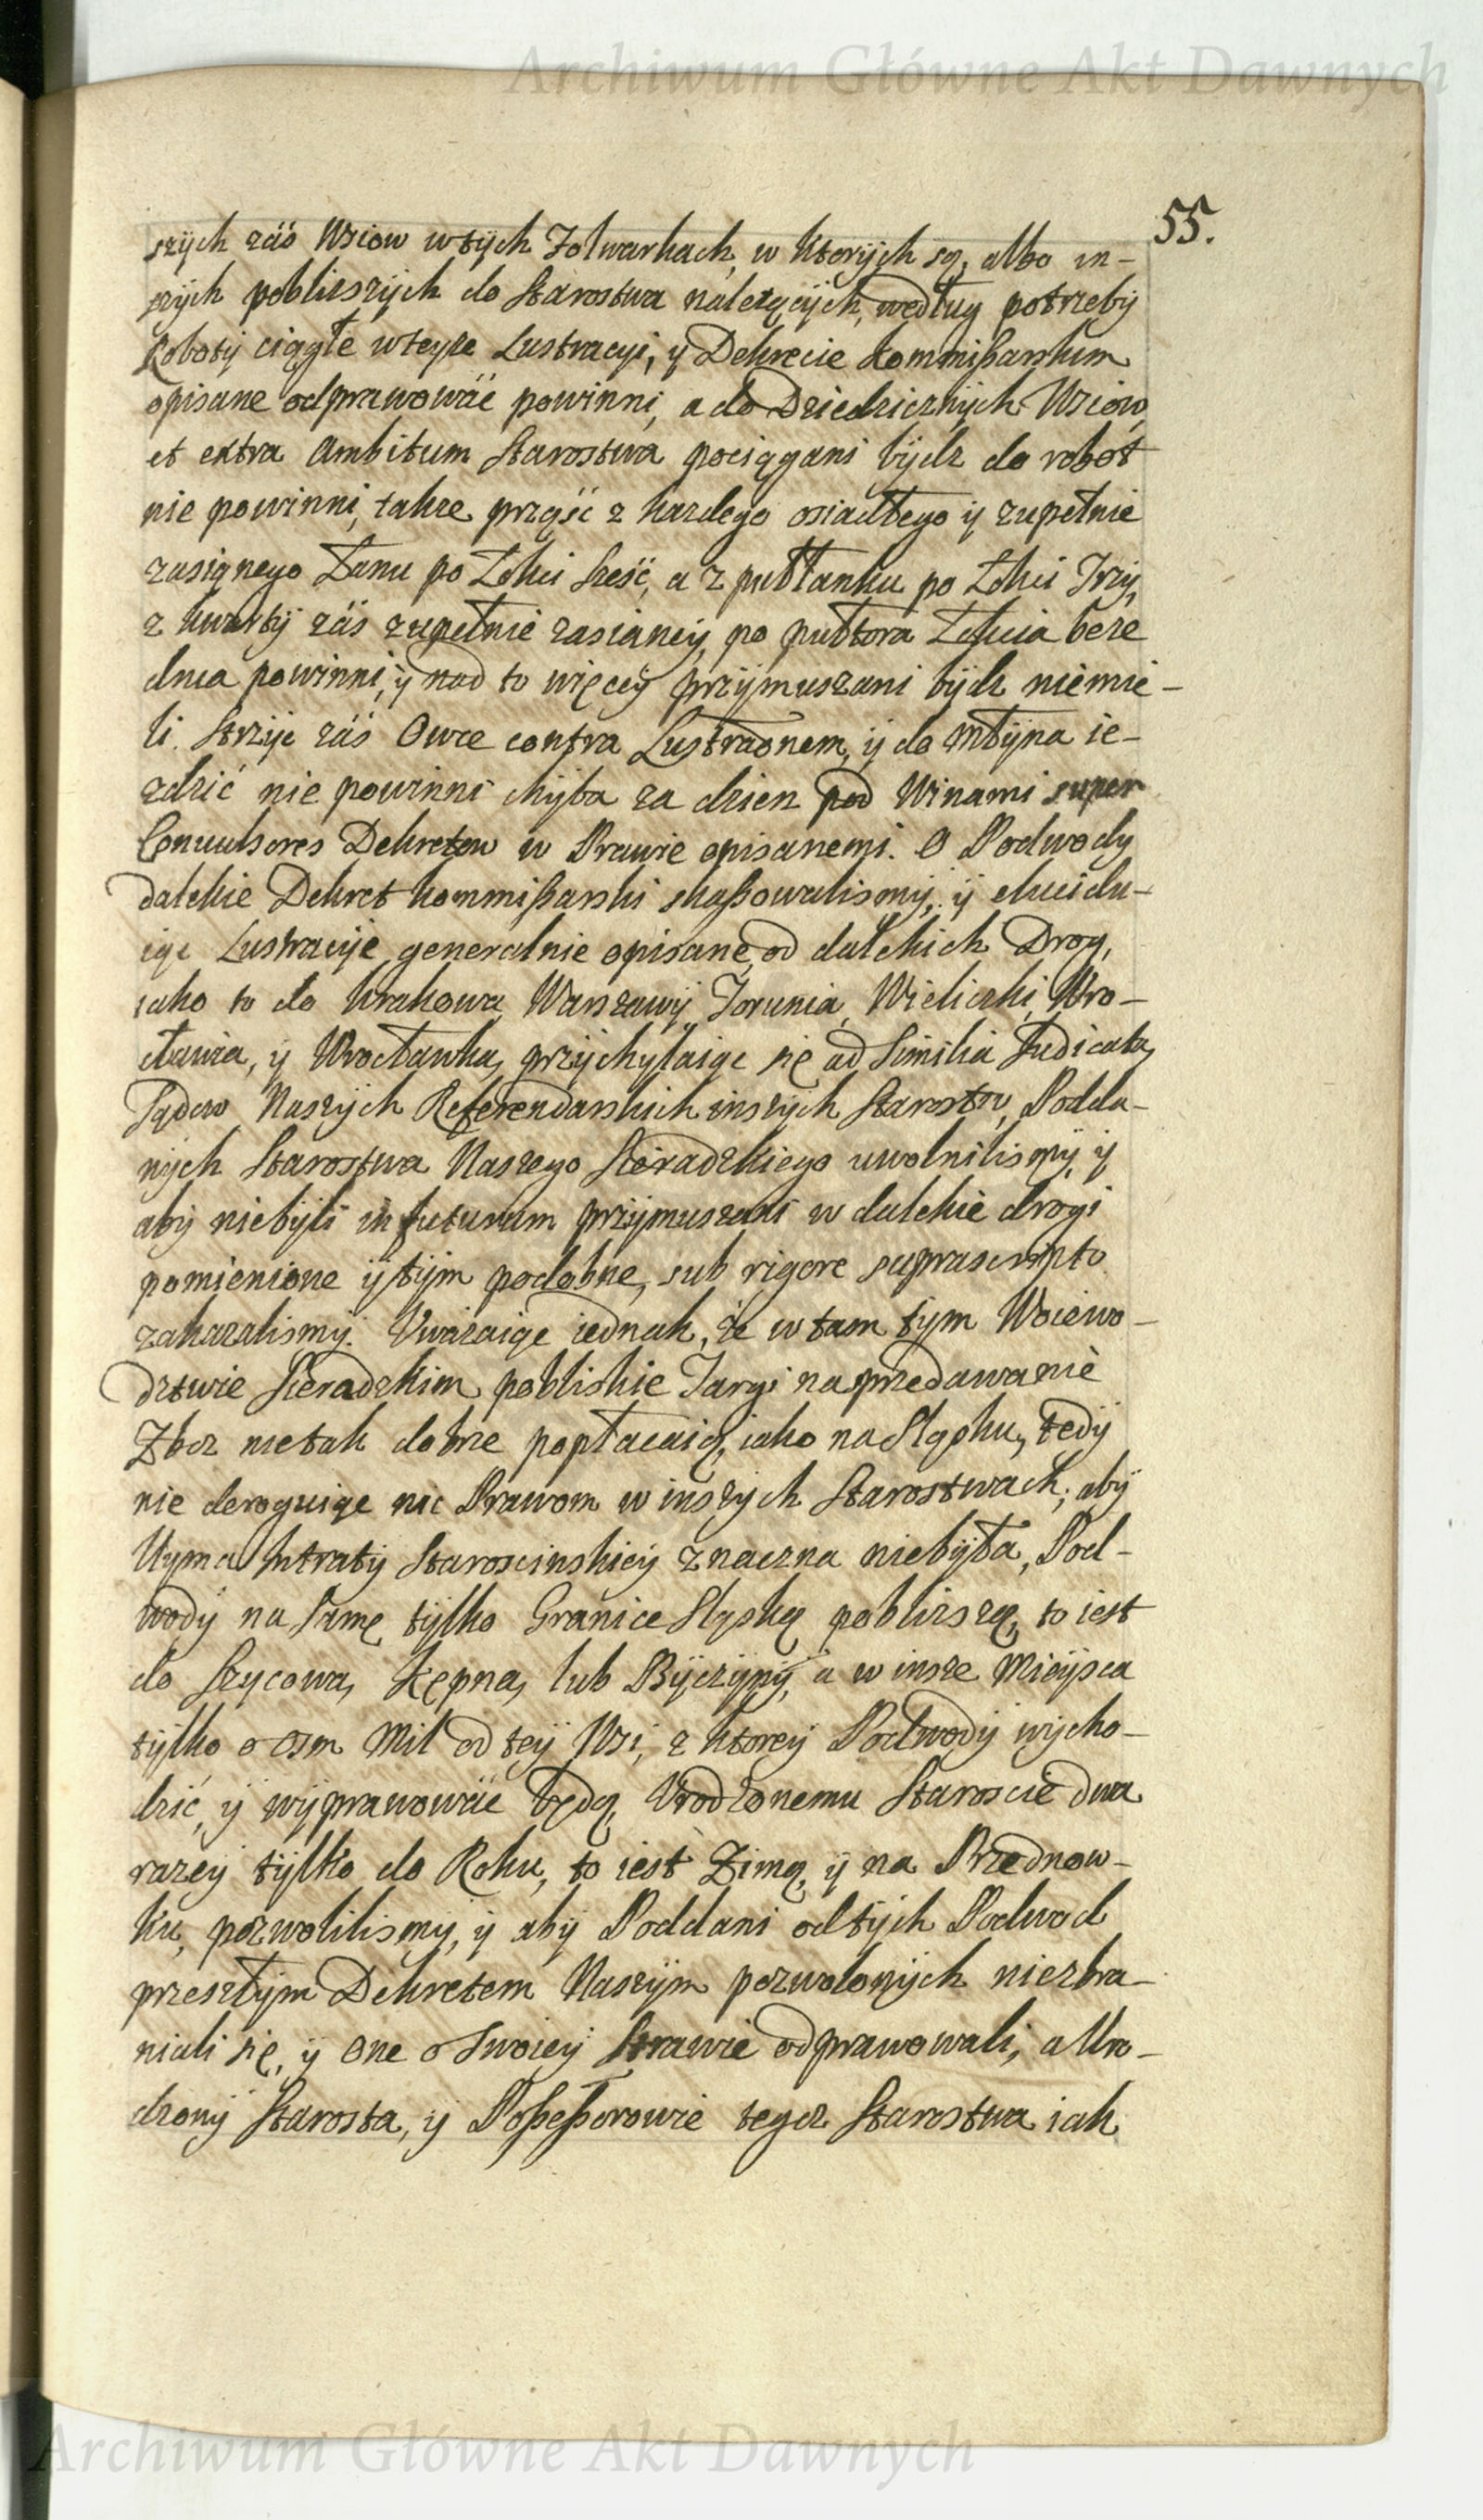 Archiwum Główne Akt Dawnych
55.
szych záś Wsiow w tych Folwarkach, w ktorych są, albo in-
szych pobliszych do Starostwa należących, według potrzeby
Roboty ciągłe w teyże Lustracyi, y Dekrecie Kommissarskim
opisane odprawowáć powinni, a do Dziedzicznych Wsiow,
et extra Ambitum Starostwa pociągani bydz do robot
nie powinni, takze prząść z kazdego osiadłego y zupełnie
zasianego Łanu po Łokci sześć, a z pułłanku po Łokci Trzy,
z kwarty záś zupełnie zasianey, po pułtora Łokcia beze
dnia powinni, y nad to więcey przymuszani bydz niemie-
li. Strzyc záś Owce contra Lustraõnem, y do Młyna ie-
zdzić nie powinni chyba za dzien pod Winami super
Convulsores Dekretow w Prawie opisanemi. O Podwody
dalekie Dekret Kommissarski skassowalismy, y elucidu-
iąc Lustracyie generalnie opisane, od dalekich Drog,
iako to do Krakowa, Warszawy, Torunia, Wieliczki, Wro-
cławia, y Wrocławka, przychylaiąc się ad Similia Iudicata,
Sądow Naszych Referendarskich inszych Starostw, Podda-
nych Starostwa Naszego Sieradzkiego uwolnilismy, y
aby niebyli in futurum przymuszani w dalekie drogi
pomienione y tym podobne, sub rigore suprascripto
zakazalismy. Uwázaiąc iednak, że w tam tym Woiewo-
dztwie Sieradzkim pobliskie Targi na przedawanie
Zboz nie tak dobrze popłacaią, iako na Sląsku, tedy
nie deroguiąc nic Prawom w inszych Starostwach, aby
Uyma Intraty Staroscinskiey znaczna niebyła, Pod-
wody na samę tylko Granice Sląską poblizszą, to iest
do Szycowa, Kępna, lub Byczyny, a w insze Mieysca
tylko o osm Mil od tey Wsi, z ktorey Podwody wycho-
dzić, y wyprawowáć będą, Urodzonemu Staroscie dwa
razy tylko do Roku, to iest Zimą, y na Przednow-
ku, pozwolilismy, y aby Poddani od tych Podwod
przeszłym Dekretem Naszym pozwolonych niezbra-
niali się, y one o swoiey Strawie odprawowali, a Uro-
dzony Starosta, y Possessorowie tegoz Starostwa iak
Archiwum Główne Akt Dawnych